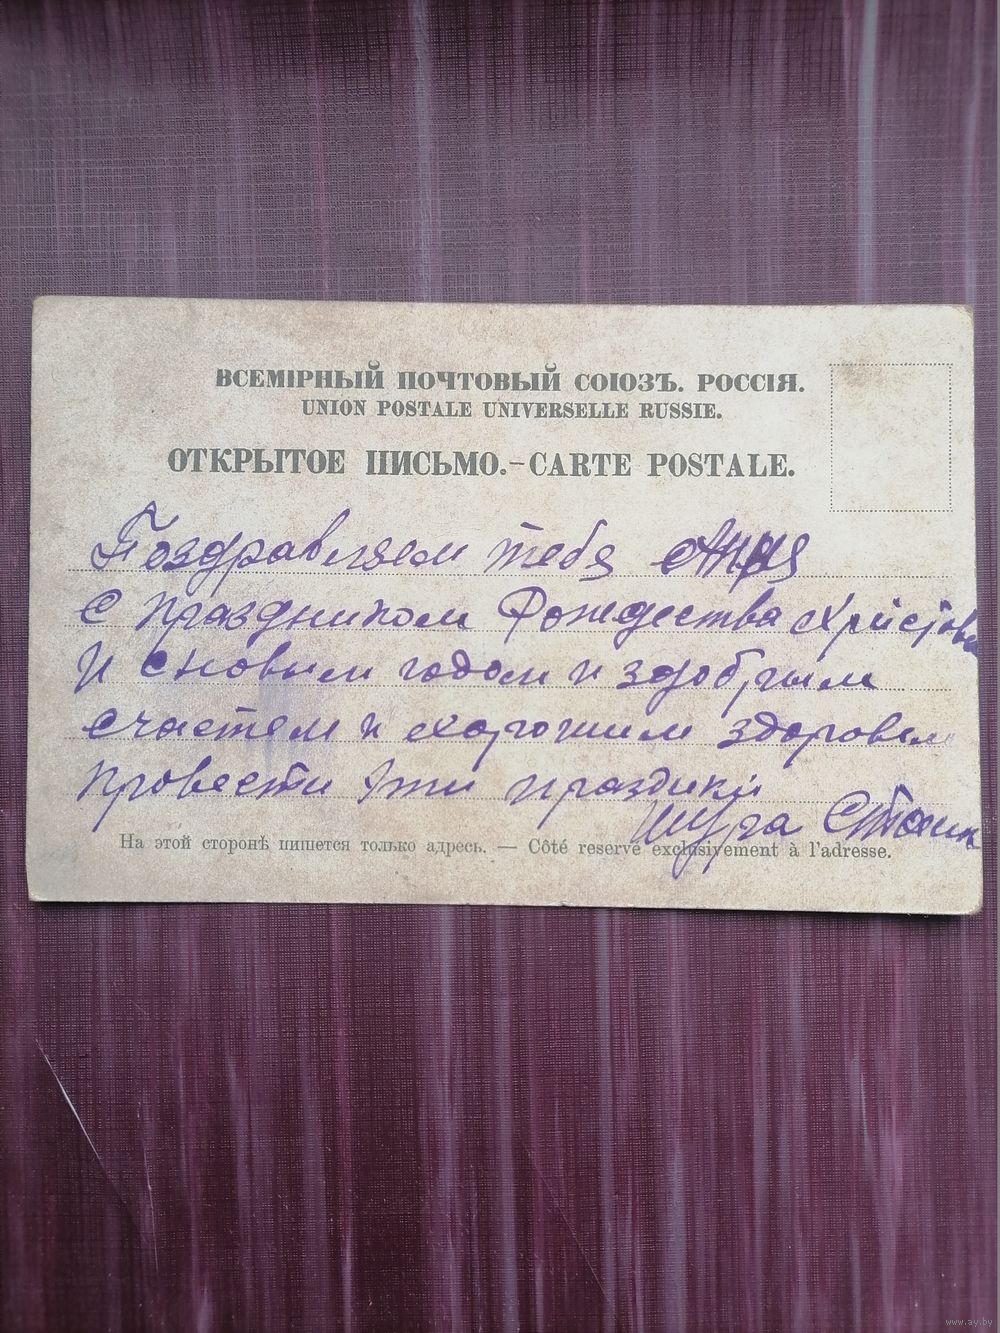 ВСЕМІРНЫЙ ПОЧТОВЫЙ СОЮЗЪ. РОССІЯ.
UNION POSTALE UNIVERSELLE RUSSIE.
ОТКРЫТОЕ ПИСЬМО.-CARTE POSTALE.
Поздравляем тебя
с праздником Рождества Христова
И с новым годом и здобрым
счастем и хорошим здоровем
провести эти праздики
Шура
На этой сторонѣ пишется только адресъ. — Côté reservé exclusivement à l'adresse.
www.ay.by